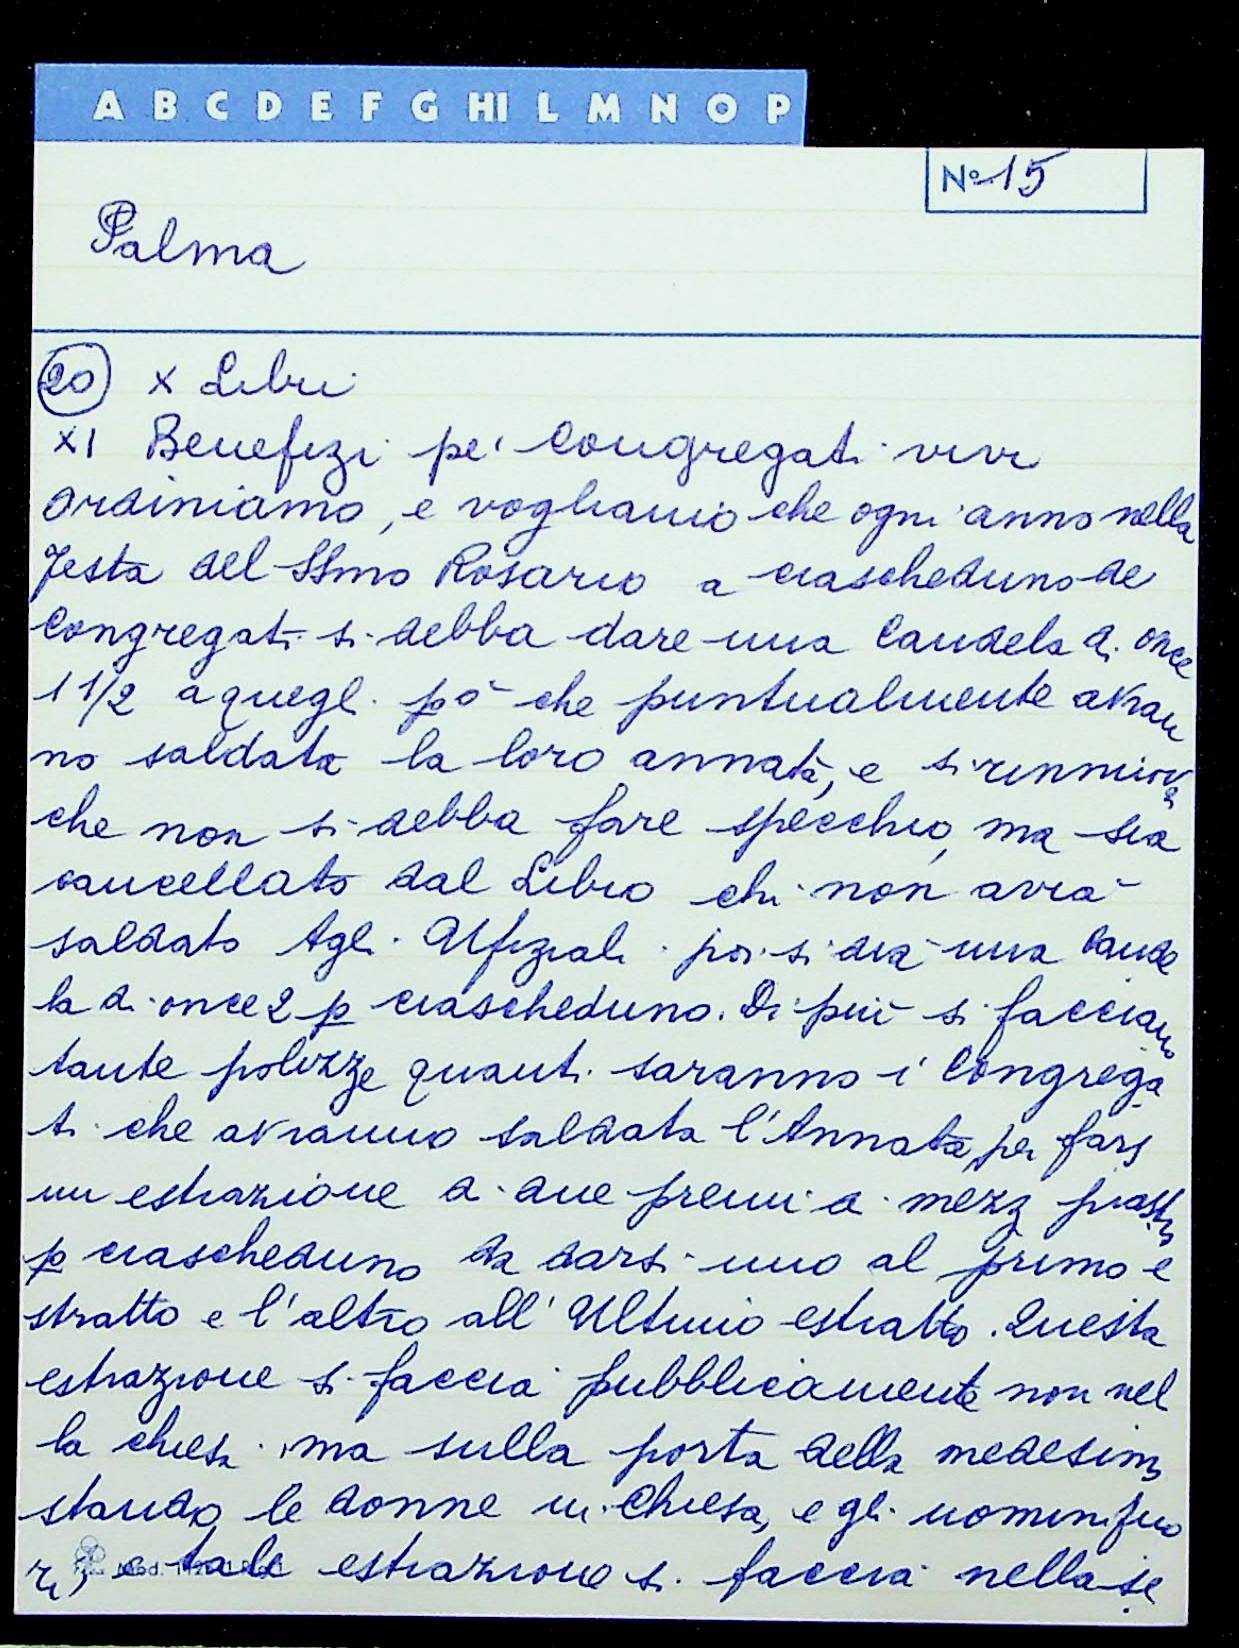 A B C D E F G HI L M N O P
Nº 15
Palma
20 X Libri
XI Benefizi pe' Congregati vivi
Ordiniamo, e vogliamo che ogni anno nella
Festa del SSmo Rosario a ciascheduno de
Congregati si debba dare una Candela di once
1 1/2 a quegli pò che puntualmente avran
no saldata la loro annata, e si rinnuova
che non si debba fare specchio, ma sia
cancellato dal Libro chi non avrà
saldato Agli Ufiziali poi si dia una Cande
la di once 2 p ciascheduno. Di più si facciano
tante polizze quanti saranno i Congrega
ti che avranno saldata l'Annata, per farsi
un estrazione di due premi di mezz piastra
p ciascheduno da darsi uno al primo e
stratto e l'altro all'Ultimo estratto. Questa
estrazione si faccia pubblicamente non nel
la chiesa ma sulla porta della medesima
stando le donne in Chiesa, e gli uomini fuo
ri, e tale estrazione si faccia nella se